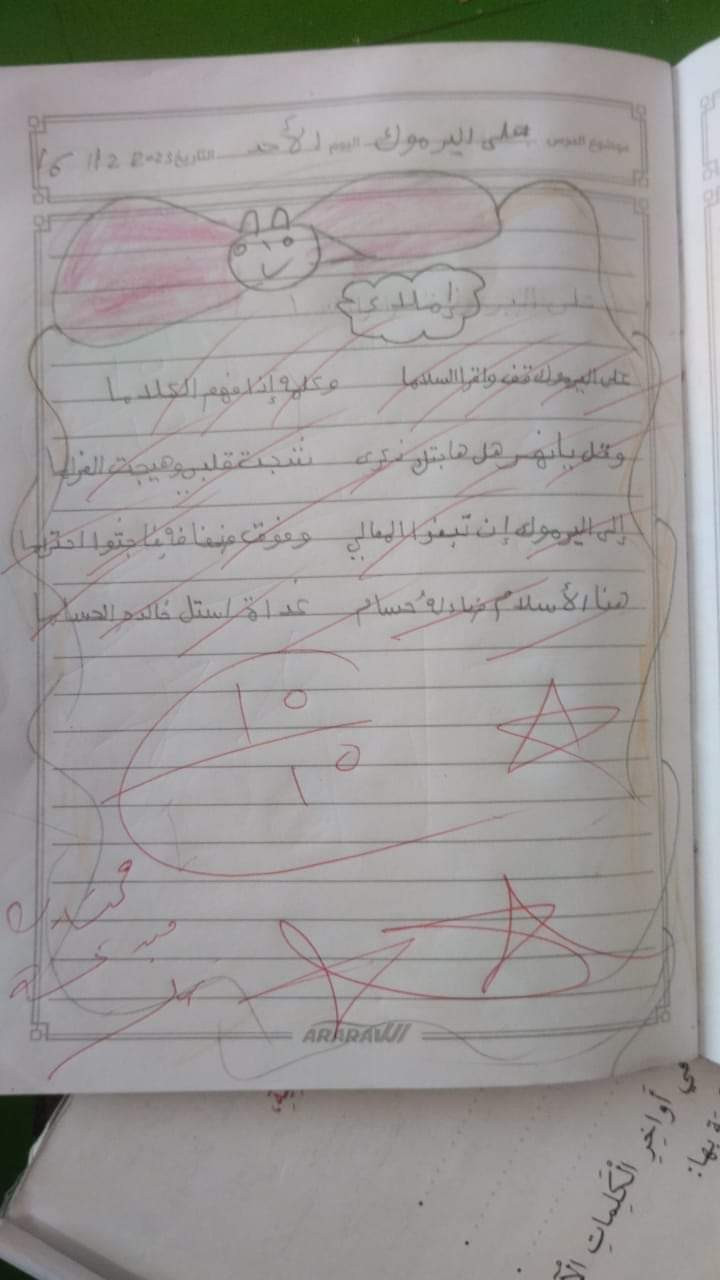 موضوع الدرس على اليرموك اليوم الأحد التاريخ 2023 11/2
إملاء
على اليرموك قف واقرا السلاما وكلمه إذا فهم الكلاما
وقل يا نهر هل هاجتك ذكرى شجت قلبي وهيجت الغراما
إلى اليرموك إن تبغوا المعالي وفوق ضفافه فاجثوا احتراما
هنا الأسلام ضاء له حسام غداة استل خالده الحساما
١٠
١٠
ARARAT
في أواخر الْكَلِمَاتِ
بها: